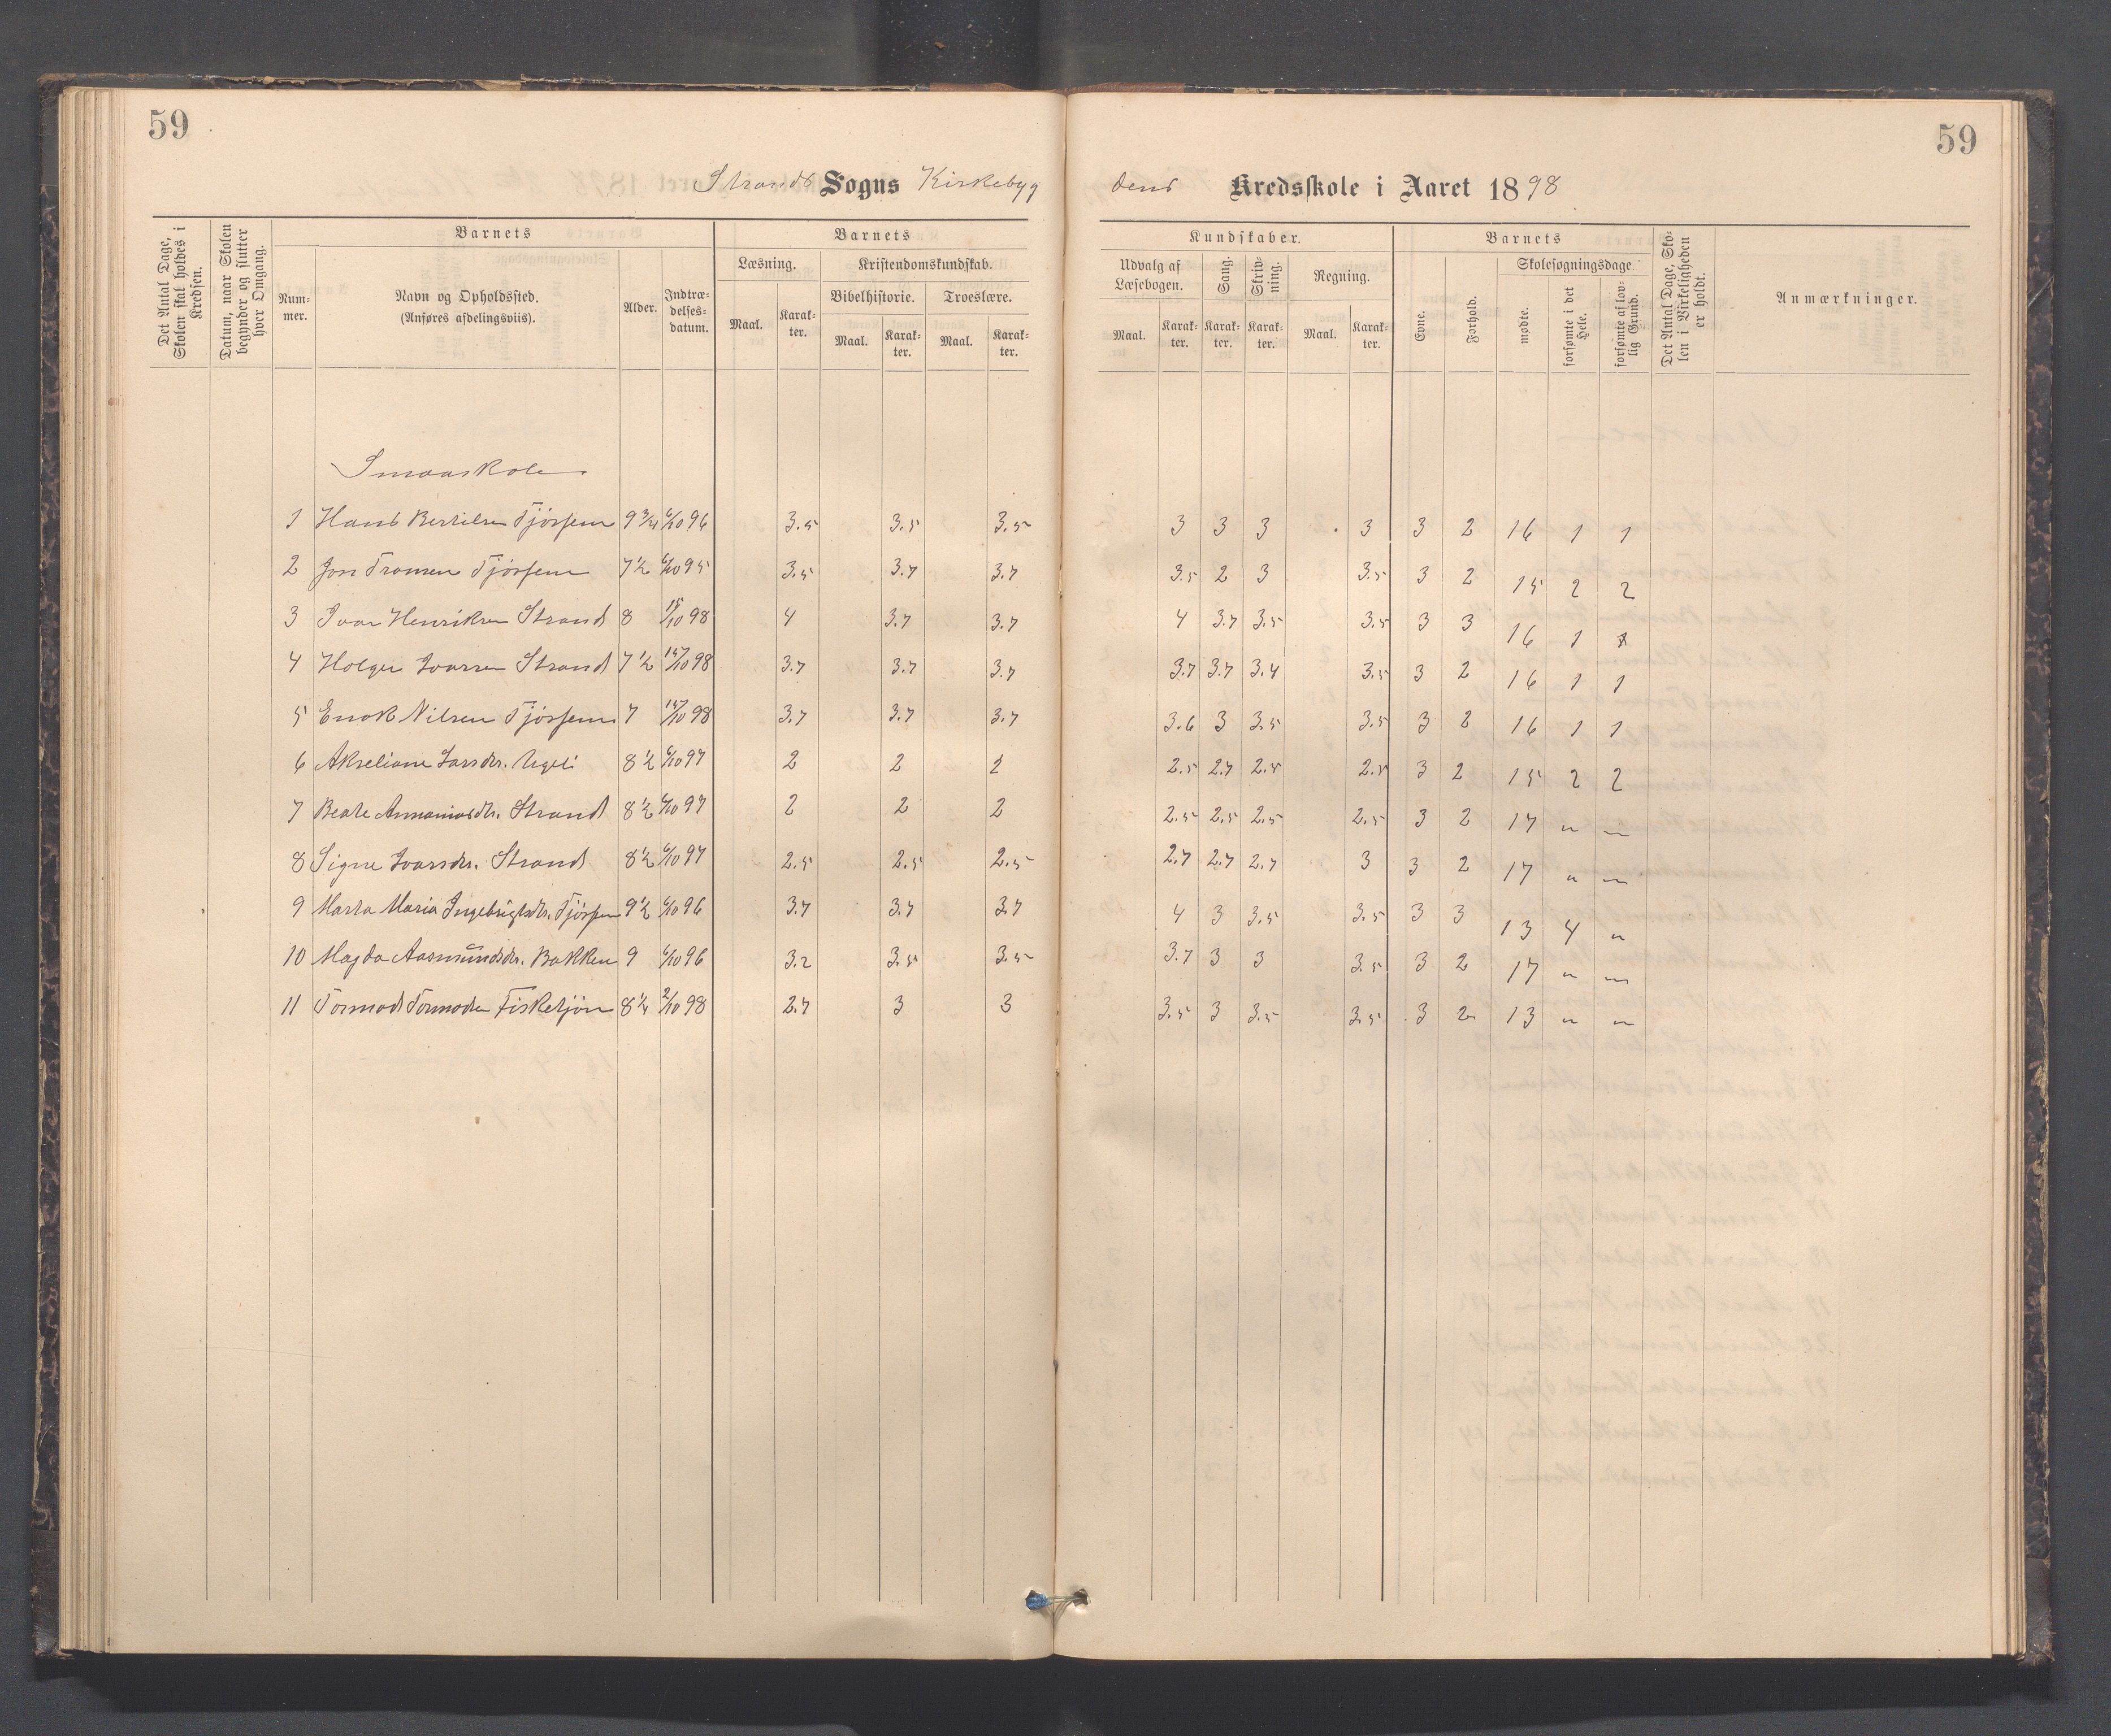 59
59
Strands Sogns Kirkebyg
dens Kredsskole i Aaret 1898
Det Antal Dage, Skolen skal holdes i Kredsen.
Datum, naar Skolen begynder og slutter hver Omgang.
Barnets
Num-mer.
Navn og Opholdssted. (Anføres afdelingsviis).
Alder.
Indtræ-delses-datum.
Barnets
Læsning.
Maal.
Karak-ter.
Kristendomskundskab.
Bibelhistorie.
Maal.
Karak-ter.
Troeslære.
Maal.
Karak-ter.
Kundskaber.
Udvalg af Læsebogen.
Maal.
Karak-ter.
Sang.
Karak-ter.
Skriv-ning.
Karak-ter.
Regning.
Maal.
Karak-ter.
Barnets
Evne.
Forhold.
Skolesøgningsdage
mødte.
forsømte i det Hele.
forsømte af lov-lig Grund.
Det Antal Dage, Sko-len i Virkeligheden er holdt.
Anmærkninger.
Smaaskole
1 Hans Bertilsen Tjössem 9 3/4 6/10 96 3.5 3.5 3.5 3 3 3 3 3 2 16 1 1
2 Jon Tronsen Tjössem 7 1/2 6/10 95 3.5 3.7 3.7 3.5 2 3 3.5 3 2 15 2 2
3 Ivar Henriksen Strand 8 15/10 98 4 3.7 3.7 4 3.7 3.5 3.5 3 3 16 1 1
4 Holger Ivarsen Strand 7 1/2 /10 98 3.7 3.7 3.7 3.7 3.7 3.4 3.5 3 2 16 1 1
5 Enok Nilsen Tjössem 7 /10 98 3.7 3.7 3.7 3.6 3 3.5 3.5 3 2 16 1 1
6 Akseliane Larsdtr. 8 1/2 6/10 97 2 2 2 2.5 2.7 2.5 2.5 3 2 15 2 2
7 Beate Annaniasdtr. Strand 8 1/2 6/10 97 2 2 2 2.5 2.5 2.5 2.5 3 2 17 " "
8 Signe Ivarsdtr. Strand 8 1/2 6/10 97 2.5 2.5 2.5 2.7 2.7 2.7 3 3 2 17 " "
9 Marta Maria Ingebrigtsdtr. Tjössem 9 1/2 6/10 96 3.7 3.7 3.7 4 3 3.5 3.5 3 3 13 4 "
10 Magda Aasmundsdtr. Bakken 9 6/10 96 3.2 3.5 3.5 3.7 3 3 3.5 3 2 17 " "
11 Tormod Tormodsen Fisketjön 8 1/4 2/10 98 2.7 3 3 3.5 3 3.5 3.5 3 2 13 " "